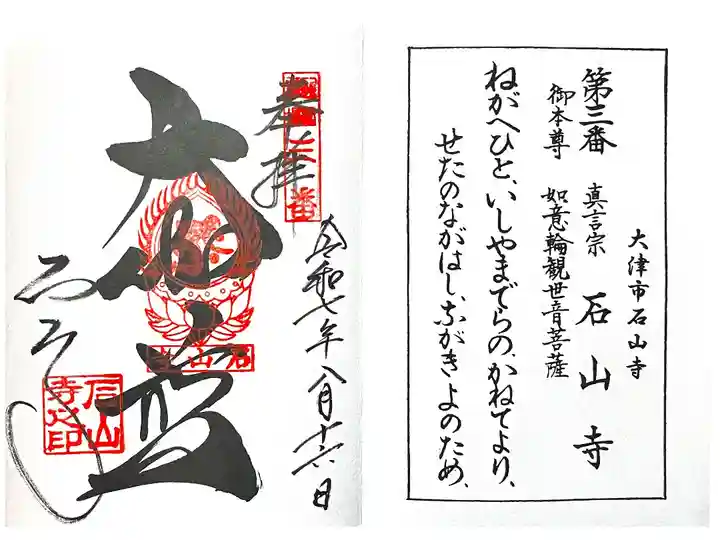 大津市石山寺
第三番 真言宗 石山寺
御本尊 如意輪観世音菩薩
ねがへひと、いしやまでらの、かねてより、
せたのながはし、ながきよのため、
奉拝
令和七年八月十六日
番
大伽藍
石山寺
石山
寺之印